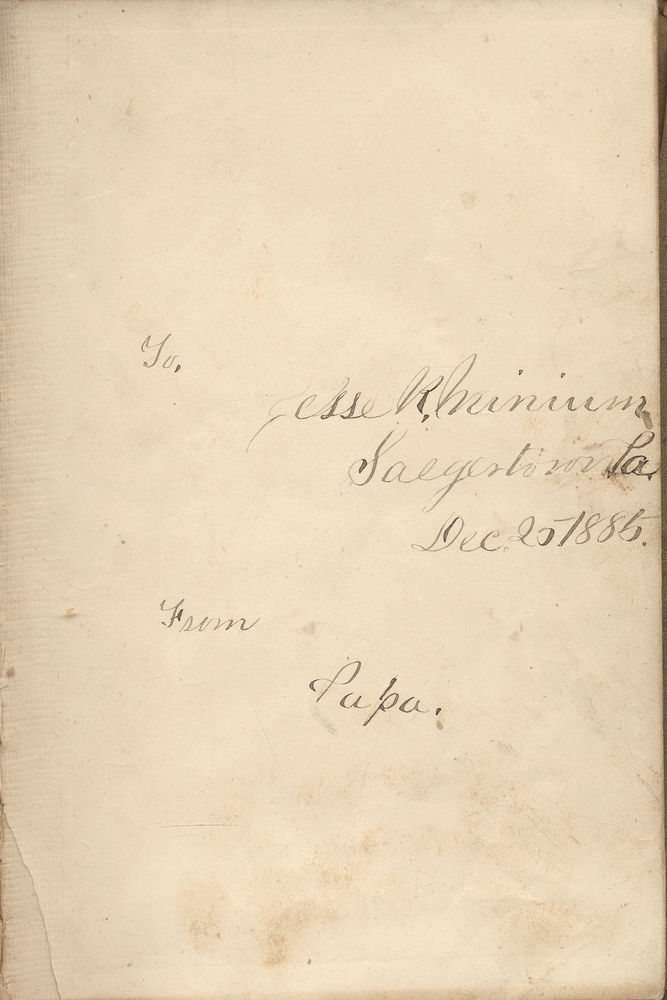 To,
Jesse K. Minium
Saegertown Pa.
Dec. 25 1885.
From
Papa.